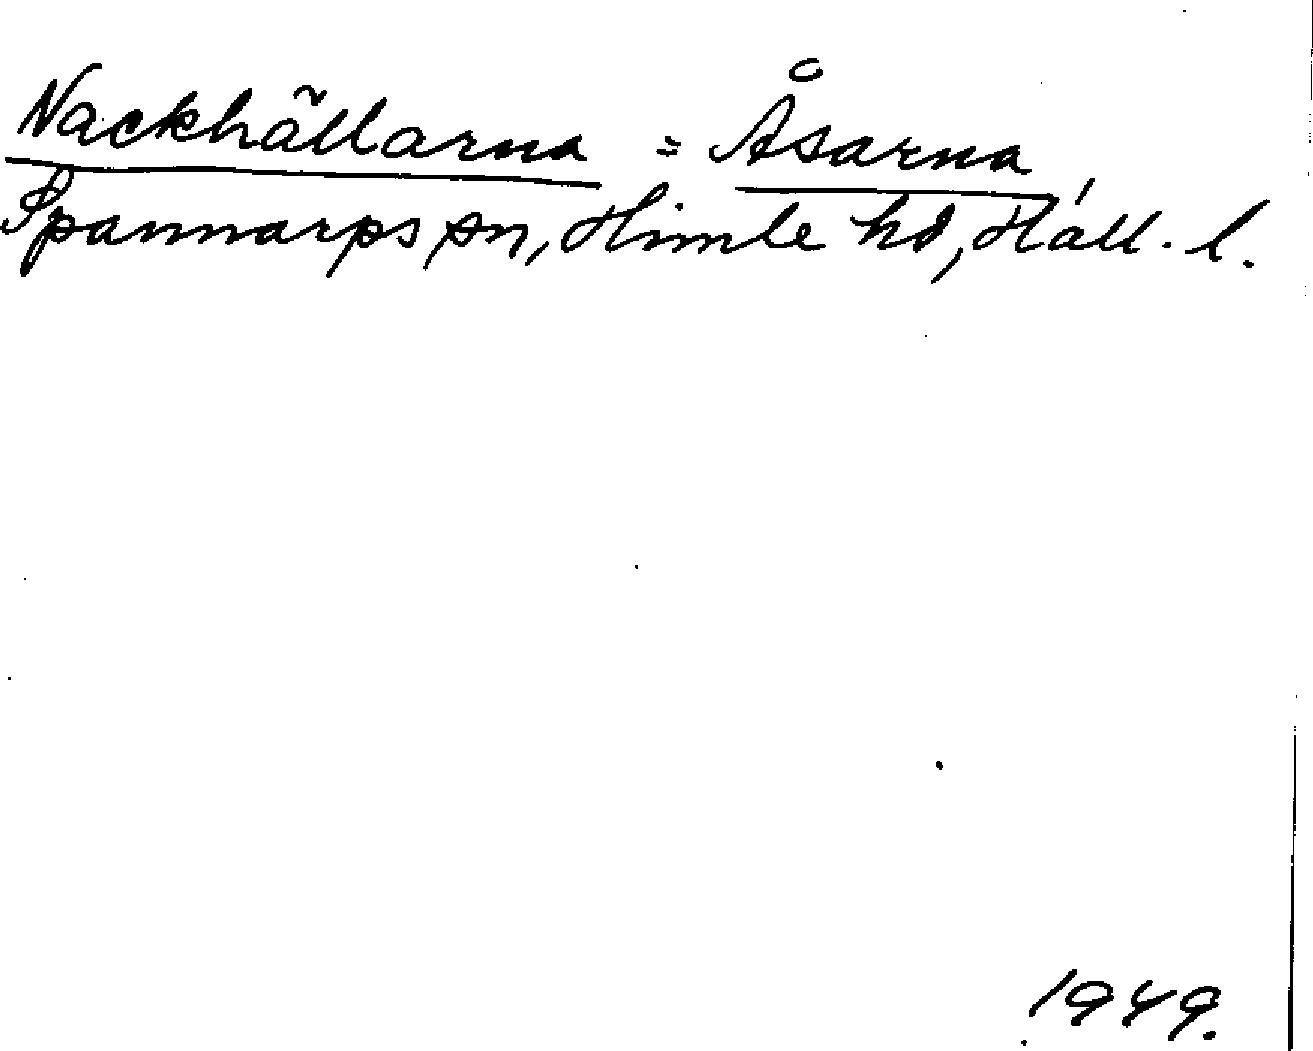 Nackhällarna = Åsarna
Spannarps sn, Himle hd, Hall. l.
1949.